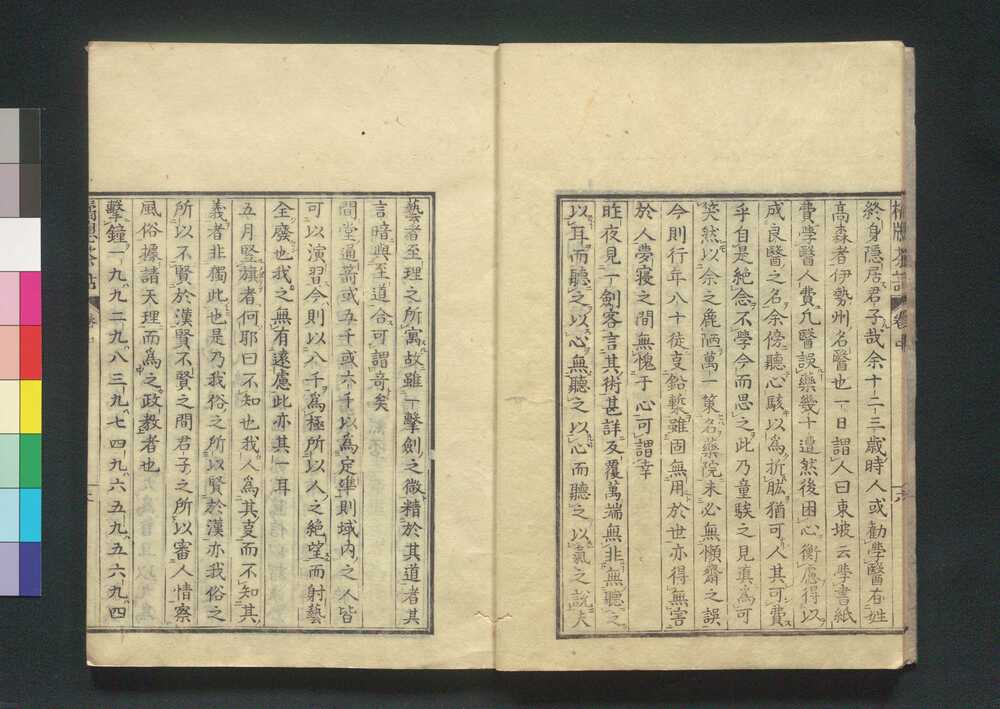 終身隱居君子哉余十二三歲時人或勸學醫有姓
高森者伊勢州名醫也一日謂人曰東坡云學書紙
費學醫人費凡醫誤藥幾十遭然後困心衡慮得以
成良醫之名余傍聽心駭以為折肱猶可人其可費
乎自是絕念不學今而思之此乃童騃之見真為可
笑然以余之麁陋萬一策名藥院未必無懶齋之誤
今則行年八十徒支鉛槧雖固無用於世亦得無害
於人夢寢之間無愧于心可謂幸
昨夜見一劍客言其術甚詳反覆萬端無非無聽之
以耳而聽之以心無聽之以心而聽之以氣之說夫
藝者至理之所寓故雖一擊劍之微精於其道者其
言暗與至道合可謂奇矣
間堂通箭或五千或六千以為定準則域內之人皆
可以演習今則以八千為極所以人之絕望而射藝
全廢也我之無有遠慮此亦其一耳
五月竪旗者何耶曰不知也我人為其支而不知其
義者非獨此也是乃我俗之所以賢於漢亦我俗之
所以不賢於漢賢不賢之間君子之所以審人情察
風俗據諸天理而為之政教者也
擊鐘一九九二九八三九七四九六五九五六九四